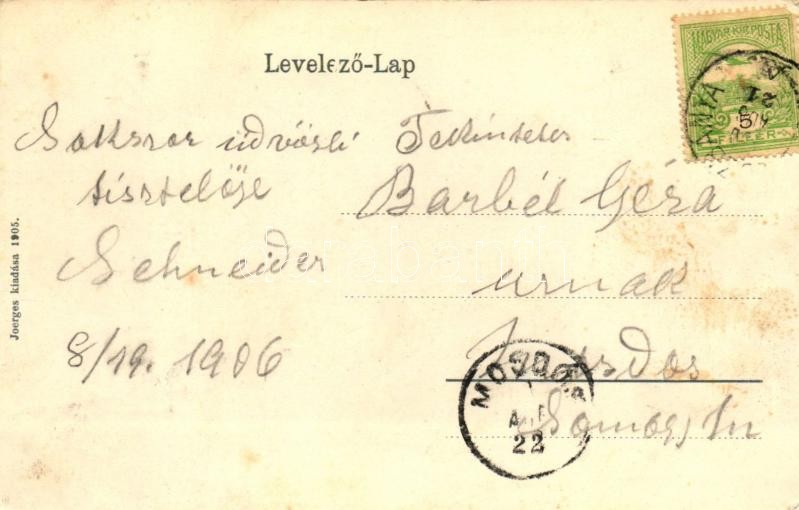 Levelező-Lap
MAGYAR KIR. POSTA
5
FILLÉR
Sokszor üdvözli
tisztelője
Schneider
8/19. 1906
Tekintetes
Barbél Géza
urnak
Somogy m
MOSDÓS
22
Joerges kiadása 1905.